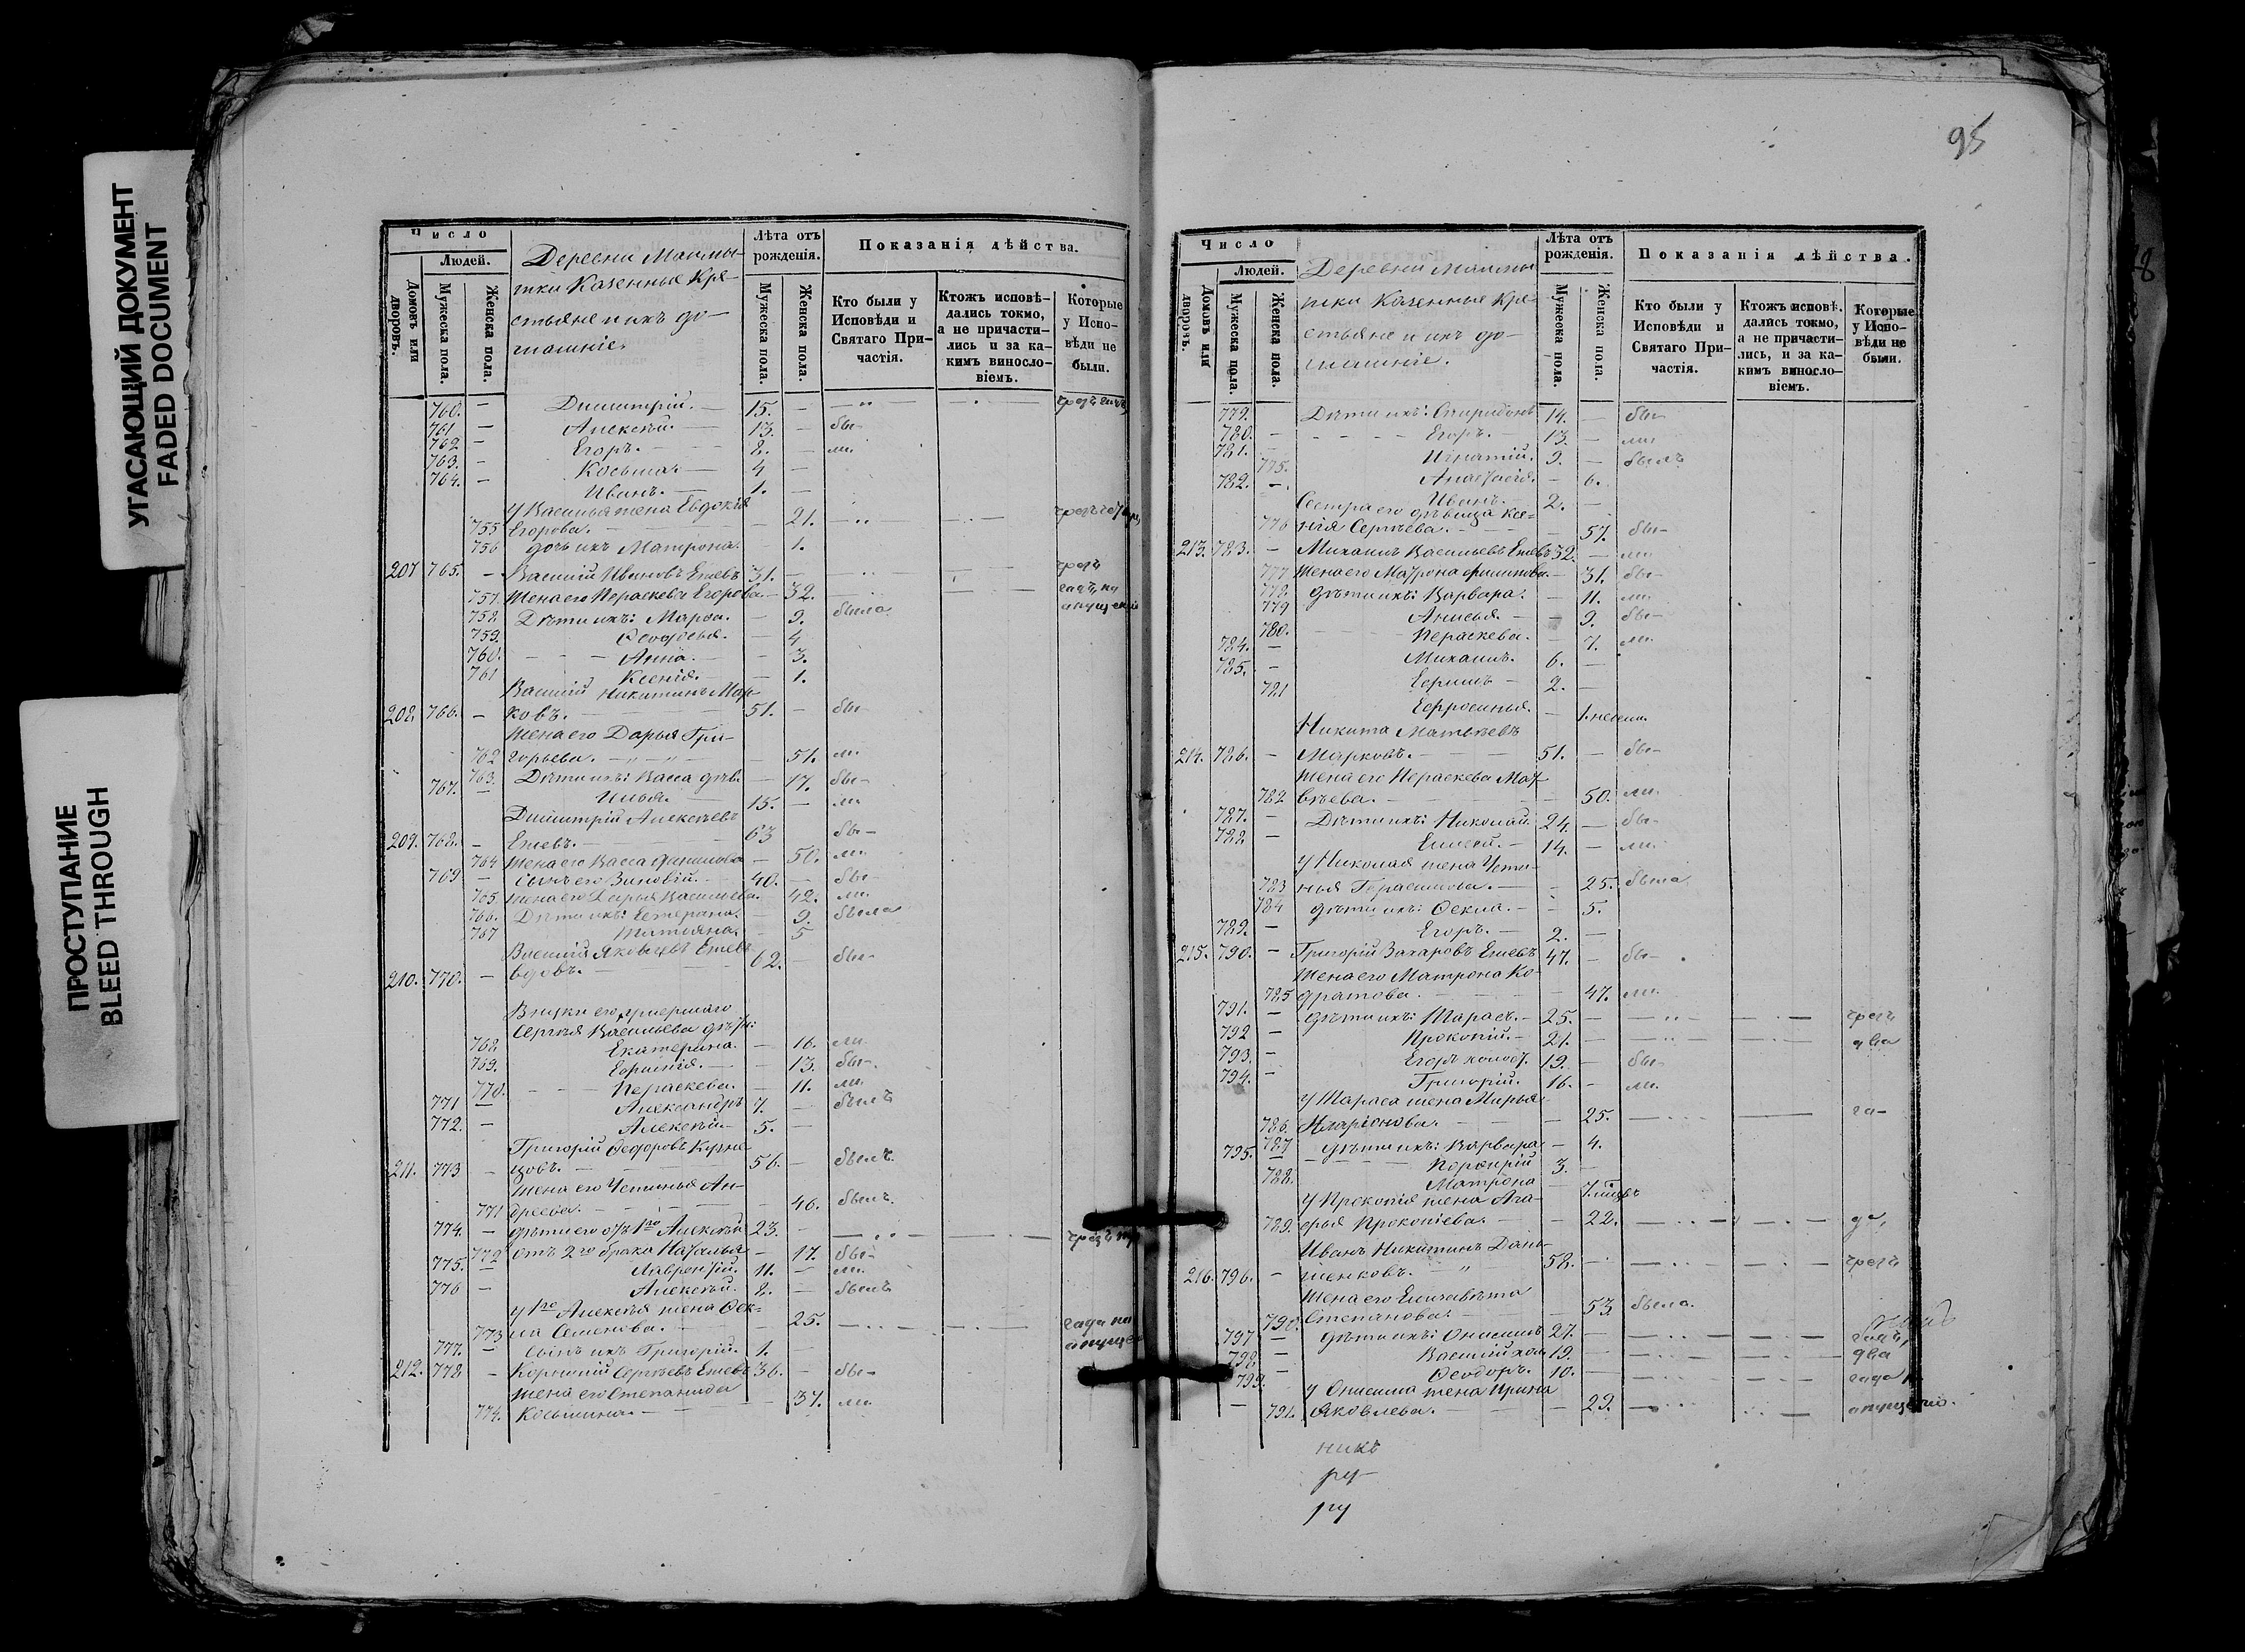 УГАСАЮЩИЙ ДОКУМЕНТ
FADED DOCUMENT
ПРОСТУПАНИЕ
BLEED THROUGH
Число
Людей.
Домовъ или дворовъ.
Мужеска пола.
Женска пола.
Деревни
Казенные Кре-
стьяне и ихъ до-
машніе.
Лѣта отъ рожденія.
Мужеска пола.
Женска пола.
Показанія дѣйства.
Кто были у Исповѣди и Святаго Причастія.
Ктожъ исповѣдались токмо, а не причастились и за какимъ винословіемъ.
Которые у Исповѣди не были.
760. — Димитрій. — 15. —
761 — Алексѣй. — 13. — бы-
762 — Егоръ. — 8. — ли.
763. — Косьма. — 4 —
764. — Иванъ. — 1. —
У Василья жена Евдокія
755 Егорова. — — 21.
756 дочь ихъ Матрона. — 1.
207 765. — Василій Ивановъ Ежевъ 31. —
757. Жена его Параскева Егорова. — 32.
758 Дѣти ихъ: Марѳа. — 9. была
759. Ѳеодосья. — 4
760. Анна. — 3.
761 Ксенія. — 1.
Василій Никитинъ Мар-
208. 766. — ковъ. — 51. — бы-
Жена его Дарья Гри-
762 горьева. — 51. ли
763. Дѣти ихъ: Васса дѣв. — 17. бы-
767. — Илья. — 15. — ли.
Димитрій Алексѣевъ
209. 768. — Ежевъ. — 63 бы-
764 Жена его Васса Филипова — 50. ли.
769 — Сынъ его Зиновій. — 40. — бы-
765 Жена его Дарья Васильева. — 42. ли.
766. Дѣти ихъ: Катерина. — 9. была
767 Татіяна. — 5
Василій Яковлевъ Ежевъ
210. 770. — вдовъ. — 62. — бы-
Внуки его, умершаго
Сергѣя Васильева дѣти:
768 Екатерина. — 16. ли
769. Евфимія. — 13. бы-
770. Параскева. — 11. ли
771 — Александръ 7. — былъ
772. — Алексѣй — 5. —
Григорій Ѳедоровъ Кузне-
211. 773 — цовъ. — 56. — былъ.
Жена его Устинья Ан-
771 дреева. — 46. былъ.
774. — дѣти его отъ 1го Алексѣй 23. —
772 отъ 2го брака Наталья — 17. бы-
775. — Лаврентій. 11. — ли.
776 — Алексѣй. 8. — былъ
У 1го Алексѣя жена Ѳек-
773 ла Семенова. — 25.
777. — Сынъ ихъ Григорій. 1. —
212. 778 — Корнилій Сергѣевъ Ежевъ 36. — бы-
Жена его Степанида
774. Косьмина. — — 37. ли.
95
Число
Людей.
Домовъ или дворовъ.
Мужеска пола.
Женска пола.
Деревни
Казенные Кре-
стьяне и ихъ до-
машніе.
Лѣта отъ рожденія.
Мужеска пола.
Женска пола.
Показанія дѣйства.
Кто были у Исповѣди и Святаго Причастія.
Ктожъ исповѣдались токмо, а не причастились, и за какимъ винословіемъ.
Которые у Исповѣди не были.
779. Дѣти ихъ: Спиридонъ 14. — бы-
780. — Егоръ. — 13. — ли
781. — Игнатій. 9. — былъ
775. Анастасія. — 6.
782. — Иванъ. — 2. —
Сестра его дѣвица Ксе-
776 нія Сергѣева. — — 57. бы-
213. 783. — Михаилъ Васильевъ Ежевъ 32. — ли
777 Жена его Матрона Филипова. — 31. бы-
778. дѣти ихъ: Варвара. — 11. ли.
779 Анисья. — 9. бы-
780. Параскева. — 7. ли.
784. — Михаилъ. 6. —
785. — Ефимъ — 2. —
781 Ефросинья. — 1.
Никита Матвѣевъ
214. 786. — Марковъ. — 51. — бы-
Жена его Параскева Мат-
782 вѣева. — 50. ли.
787. — Дѣти ихъ: Николай. 24. — бы-
788 — Елисей. — 14. — ли.
У Николая жена Усти-
783 нья Герасимова. — 25. была
784 дѣти ихъ: Ѳекла. — 5.
789. — Егоръ. — 2. —
215. 790. — Григорій Захаровъ Ежевъ 47. — бы-
Жена его Матрона Ко-
785 дратова. — 47. ли.
791. — дѣти ихъ: Тарасъ. — 25. —
792 — Прокопій. — 21. — два
793. — Егоръ холост. 19. — бы-
794. — Григорій. 16. — ли.
У Тараса жена Марья
786. Иларіонова. — 25. га-
787 дѣти ихъ: Варвара — 4.
795. — Порфирій 3. —
788. Матрона —
У Прокопія жена Ага-
789. фья Прокопіева. — 22. да,
Иванъ Никитинъ Дани-
216. 796. — ленковъ. 58. —
Жена его Елизавета
790. Степанова. — 53. была.
797 — дѣти ихъ: Онисимъ 27. —
798. — Василій хол. 19. — два
799. — Ѳеодоръ. 10. — года
У Онисима жена Ирина
791. Яковлева. — 29.
никъ
ру
ру